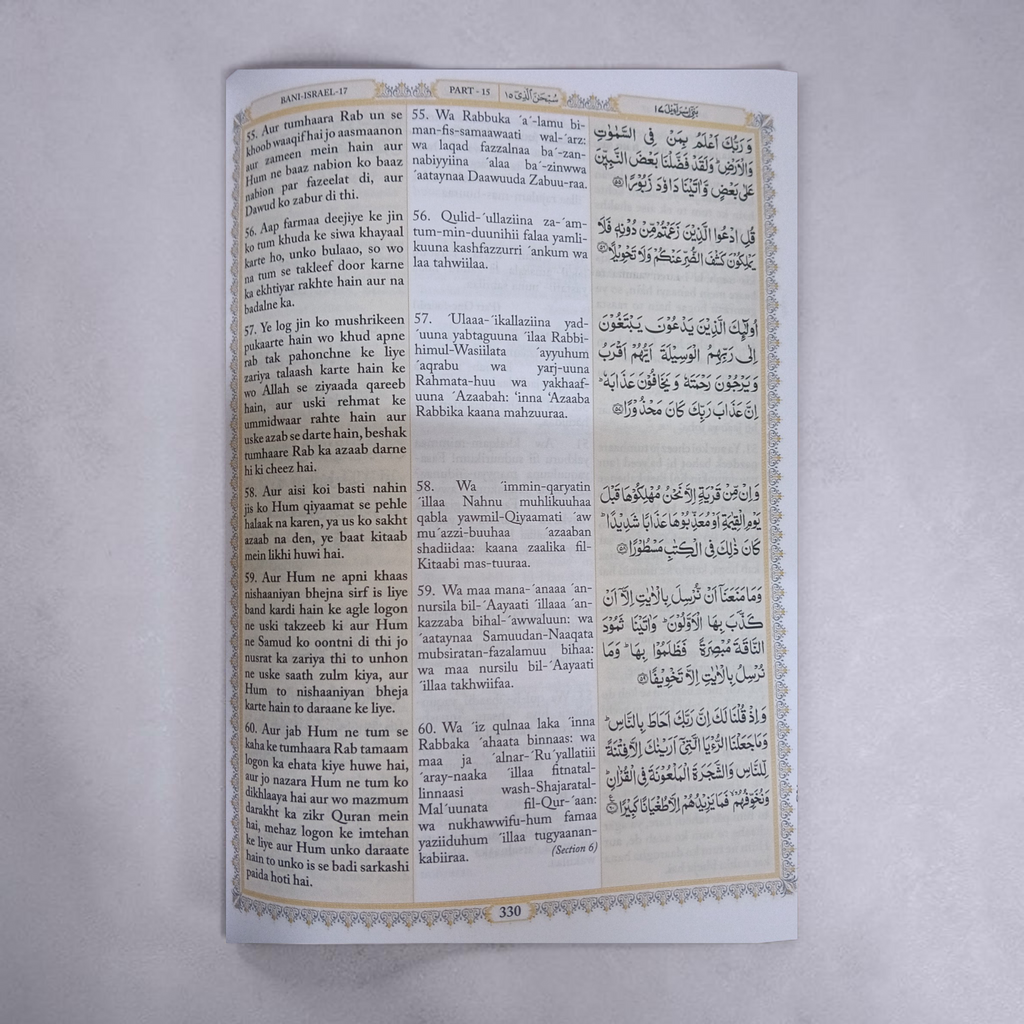 BANI-ISRAEL-17
PART - 15
سُبْحٰنَ الَّذِیْ ١٥
بَنِیْٓ اِسْرَآءِیْل ١٧
55. Aur tumhaara Rab un se
khoob waaqif hai jo aasmaanon
aur zameen mein hain aur
Hum ne baaz nabion ko baaz
nabion par fazeelat di, aur
Dawud ko zabur di thi.
56. Aap farmaa deejiye ke jin
ko tum khuda ke siwa khayaal
karte ho, unko bulaao, so wo
na tum se takleef door karne
ka ekhtiyar rakhte hain aur na
badalne ka.
57. Ye log jin ko mushrikeen
pukaarte hain wo khud apne
rab tak pahonchne ke liye
zariya talaash karte hain ke
wo Allah se ziyaada qareeb
hain, aur uski rehmat ke
ummidwaar rahte hain aur
uske azab se darte hain, beshak
tumhaare Rab ka azaab darne
hi ki cheez hai.
58. Aur aisi koi basti nahin
jis ko Hum qiyaamat se pehle
halaak na karen, ya us ko sakht
azaab na den, ye baat kitaab
mein likhi huwi hai.
59. Aur Hum ne apni khaas
nishaaniyan bhejna sirf is liye
band kardi hain ke agle logon
ne uski takzeeb ki aur Hum
ne Samud ko oontni di thi jo
nusrat ka zariya thi to unhon
ne uske saath zulm kiya, aur
Hum to nishaaniyan bheja
karte hain to daraane ke liye.
60. Aur jab Hum ne tum se
kaha ke tumhaara Rab tamaam
logon ka ehata kiye huwe hai,
aur jo nazara Hum ne tum ko
dikhlaaya hai aur wo mazmum
darakht ka zikr Quran mein
hai, mehaz logon ke imtehan
ke liye aur Hum unko daraate
hain to unko is se badi sarkashi
paida hoti hai.
55. Wa Rabbuka ´a´-lamu bi-
man-fis-samaawaati wal-´arz:
wa laqad fazzalnaa ba´-zan-
nabiyyiina ´alaa ba´-zinwwa
´aataynaa Daawuuda Zabuu-raa.
56. Qulid-´ullaziina za-´am-
tum-min-duunihii falaa yamli-
kuuna kashfazzurri ´ankum wa
laa tahwiilaa.
57. ´Ulaaa-´ikallaziina yad-
´uuna yabtaguuna ´ilaa Rabbi-
himul-Wasiilata ´ayyuhum
´aqrabu wa yarj-uuna
Rahmata-huu wa yakhaaf-
uuna ´Azaabah: ‘inna ‘Azaaba
Rabbika kaana mahzuuraa.
58. Wa ´immin-qaryatin
´illaa Nahnu muhlikuuhaa
qabla yawmil-Qiyaamati ´aw
mu´azzi-buuhaa ´azaaban
shadiidaa: kaana zaalika fil-
Kitaabi mas-tuuraa.
59. Wa maa mana-´anaaa ´an-
nursila bil-´Aayaati ´illaaa ´an-
kazzaba bihal-´awwaluun: wa
´aataynaa Samuudan-Naaqata
mubsiratan-fazalamuu bihaa:
wa maa nursilu bil-´Aayaati
´illaa takhwiifaa.
60. Wa ´iz qulnaa laka ´inna
Rabbaka ´ahaata binnaas: wa
maa ja ´alnar-´Ru´yallatiii
´aray-naaka ´illaa fitnatal-
linnaasi wash-Shajaratal-
Mal´uunata fil-Qur-´aan:
wa nukhawwifu-hum famaa
yaziiduhum ´illaa tugyaanan-
kabiiraa. (Section 6)
وَ رَبُّكَ اَعْلَمُ بِمَنْ فِی السَّمٰوٰتِ
وَالْاَرْضِ ؕ وَلَقَدْ فَضَّلْنَا بَعْضَ النَّبِیّٖنَ
عَلٰی بَعْضٍ وَّاٰتَیْنَا دَاوٗدَ زَبُوْرًا ﴿۵۵﴾
قُلِ ادْعُوا الَّذِیْنَ زَعَمْتُمْ مِّنْ دُوْنِهٖ فَلَا
یَمْلِكُوْنَ كَشْفَ الضُّرِّ عَنْكُمْ وَلَا تَحْوِیْلًا ﴿۵۶﴾
اُولٰٓئِكَ الَّذِیْنَ یَدْعُوْنَ یَبْتَغُوْنَ
اِلٰی رَبِّهِمُ الْوَسِیْلَةَ اَیُّهُمْ اَقْرَبُ
وَ یَرْجُوْنَ رَحْمَتَهٗ وَ یَخَافُوْنَ عَذَابَهٗ ؕ
اِنَّ عَذَابَ رَبِّكَ كَانَ مَحْذُوْرًا ﴿۵۷﴾
وَ اِنْ مِّنْ قَرْیَةٍ اِلَّا نَحْنُ مُهْلِكُوْهَا قَبْلَ
یَوْمِ الْقِیٰمَةِ اَوْ مُعَذِّبُوْهَا عَذَابًا شَدِیْدًا ؕ
كَانَ ذٰلِكَ فِی الْكِتٰبِ مَسْطُوْرًا ﴿۵۸﴾
وَمَا مَنَعَنَاۤ اَنْ نُّرْسِلَ بِالْاٰیٰتِ اِلَّاۤ اَنْ
كَذَّبَ بِهَا الْاَوَّلُوْنَ ؕ وَاٰتَیْنَا ثَمُوْدَ
النَّاقَةَ مُبْصِرَةً فَظَلَمُوْا بِهَا ؕ وَمَا
نُرْسِلُ بِالْاٰیٰتِ اِلَّا تَخْوِیْفًا ﴿۵۹﴾
وَ اِذْ قُلْنَا لَكَ اِنَّ رَبَّكَ اَحَاطَ بِالنَّاسِ ؕ
وَمَا جَعَلْنَا الرُّءْیَا الَّتِیْۤ اَرَیْنٰكَ اِلَّا فِتْنَةً
لِّلنَّاسِ وَالشَّجَرَةَ الْمَلْعُوْنَةَ فِی الْقُرْاٰنِ ؕ
وَنُخَوِّفُهُمْ ۙ فَمَا یَزِیْدُهُمْ اِلَّا طُغْیَانًا كَبِیْرًا ﴿۶۰﴾
330